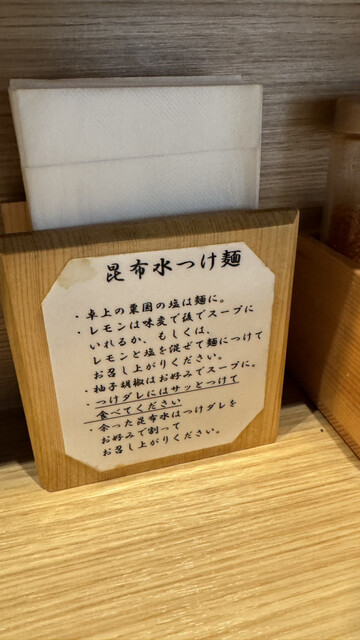 昆布水つけ麺
・卓上の粟国の塩は麺に。
・レモンは味変で後でスープに
いれるか、もしくは、
レモンと塩を混ぜて麺につけて
お召し上がりください。
・柚子胡椒はお好みでスープに。
・つけダレにはサッとつけて
食べてください
・余った昆布水はつけダレを
お好みで割って
お召し上がりください。